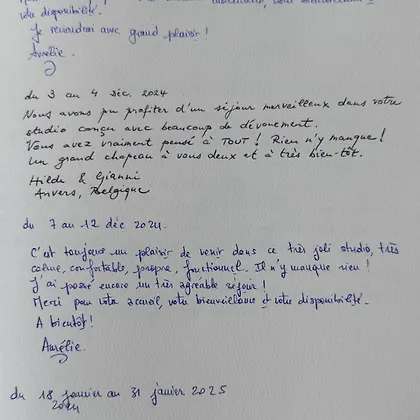 votre disponibilité.
Je reviendrai avec grand plaisir !
Aurélie.
du 3 au 4 Déc. 2024
Nous avons pu profiter d'un séjour merveilleux dans votre
studio conçu avec beaucoup de dévouement.
Vous avez vraiment pensé à TOUT ! Rien n'y manque !
Un grand chapeau à vous deux et à très bientôt.
Hilde & Gianni
Anvers, Belgique
du 7 au 12 déc 2024.
C'est toujours un plaisir de venir dans ce très joli studio, très
calme, confortable, propre, fonctionnel. Il n'y manque rien !
J'ai passé encore un très agréable séjour !
Merci pour votre accueil, votre bienveillance et votre disponibilité.
A bientôt !
Aurélie.
du 18 janvier au 31 janvier 2025
2024